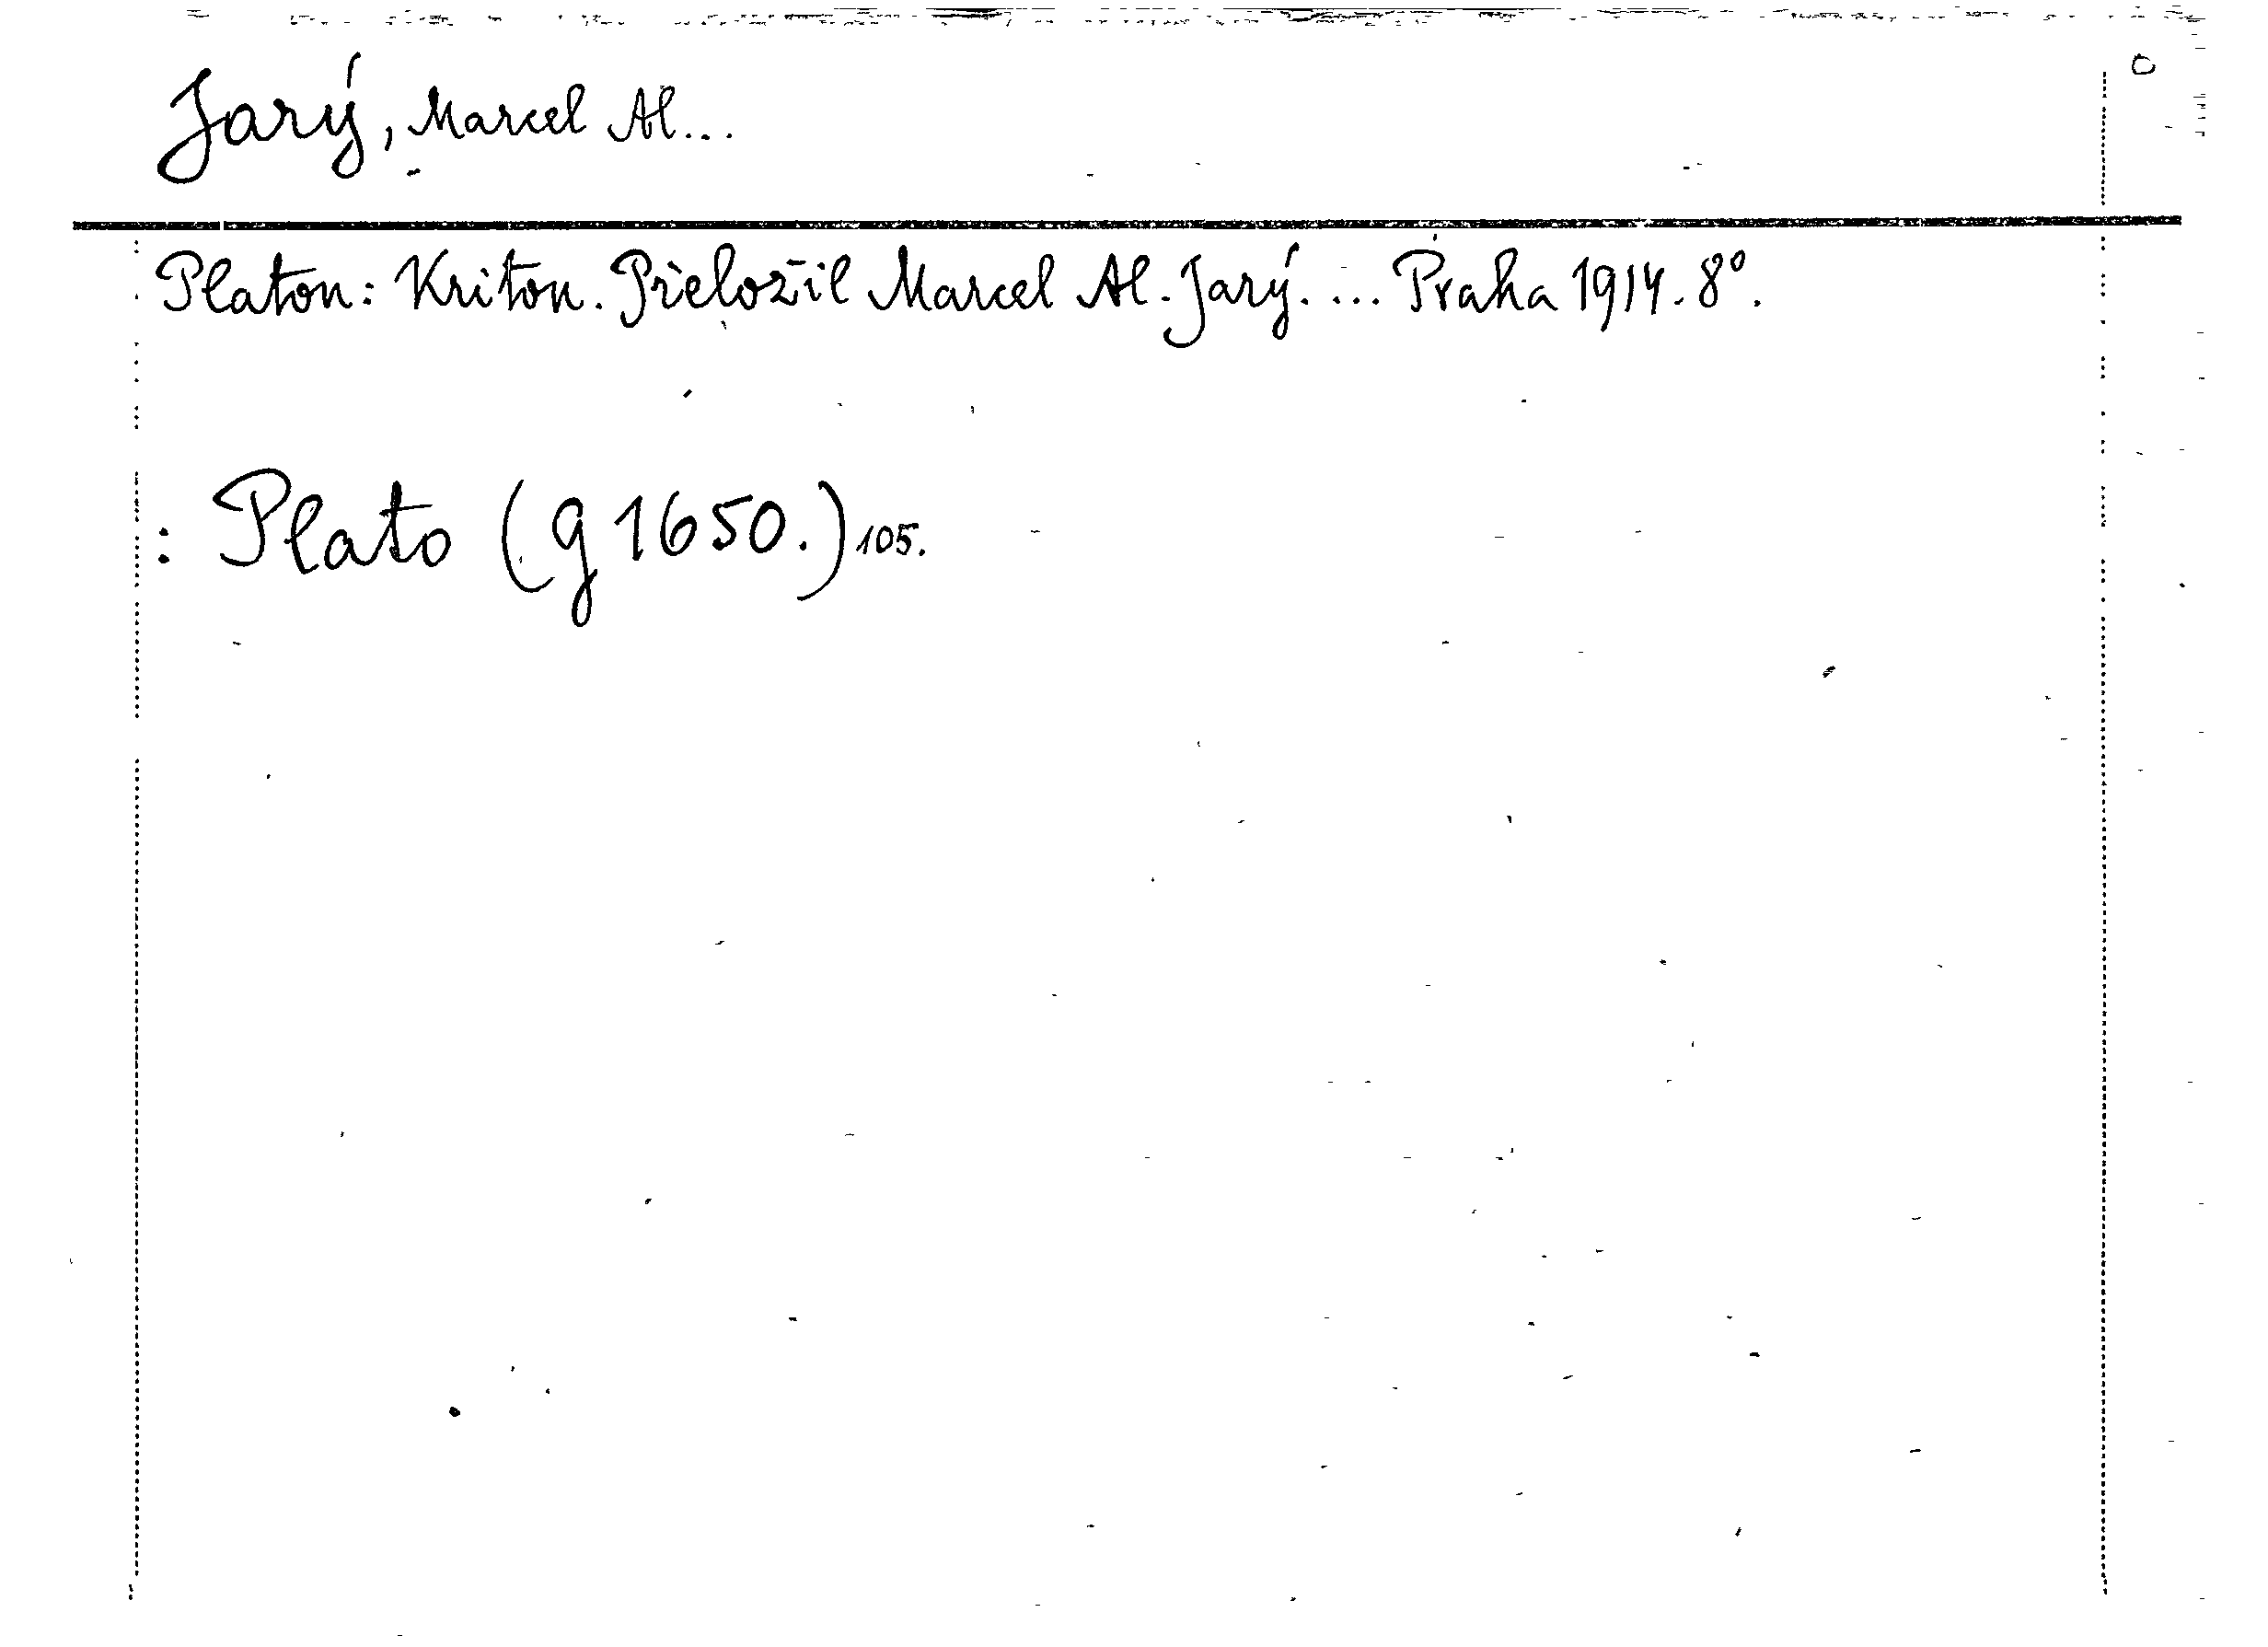 Jarý, Marcel Al...
Platon: Kriton. Přeložil Marcel Al. Jarý. ... Praha 1914. 8°.
: Plato (g 1650.) 105.